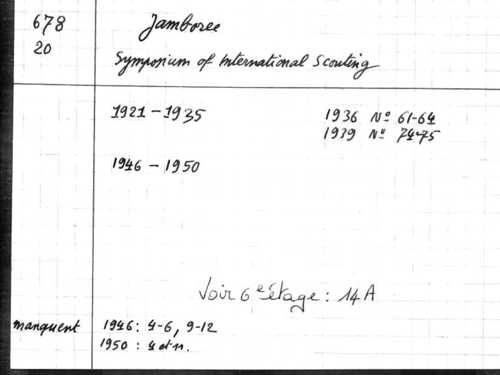 678
20
Jamboree
Symposium of International Scouting
1921 - 1935
1936 Nº 61-64
1939 Nº 74-75
1946 - 1950
Voir 6e étage : 14A
manquent 1946 : 4-6, 9-12
1950 : 4 et 11.